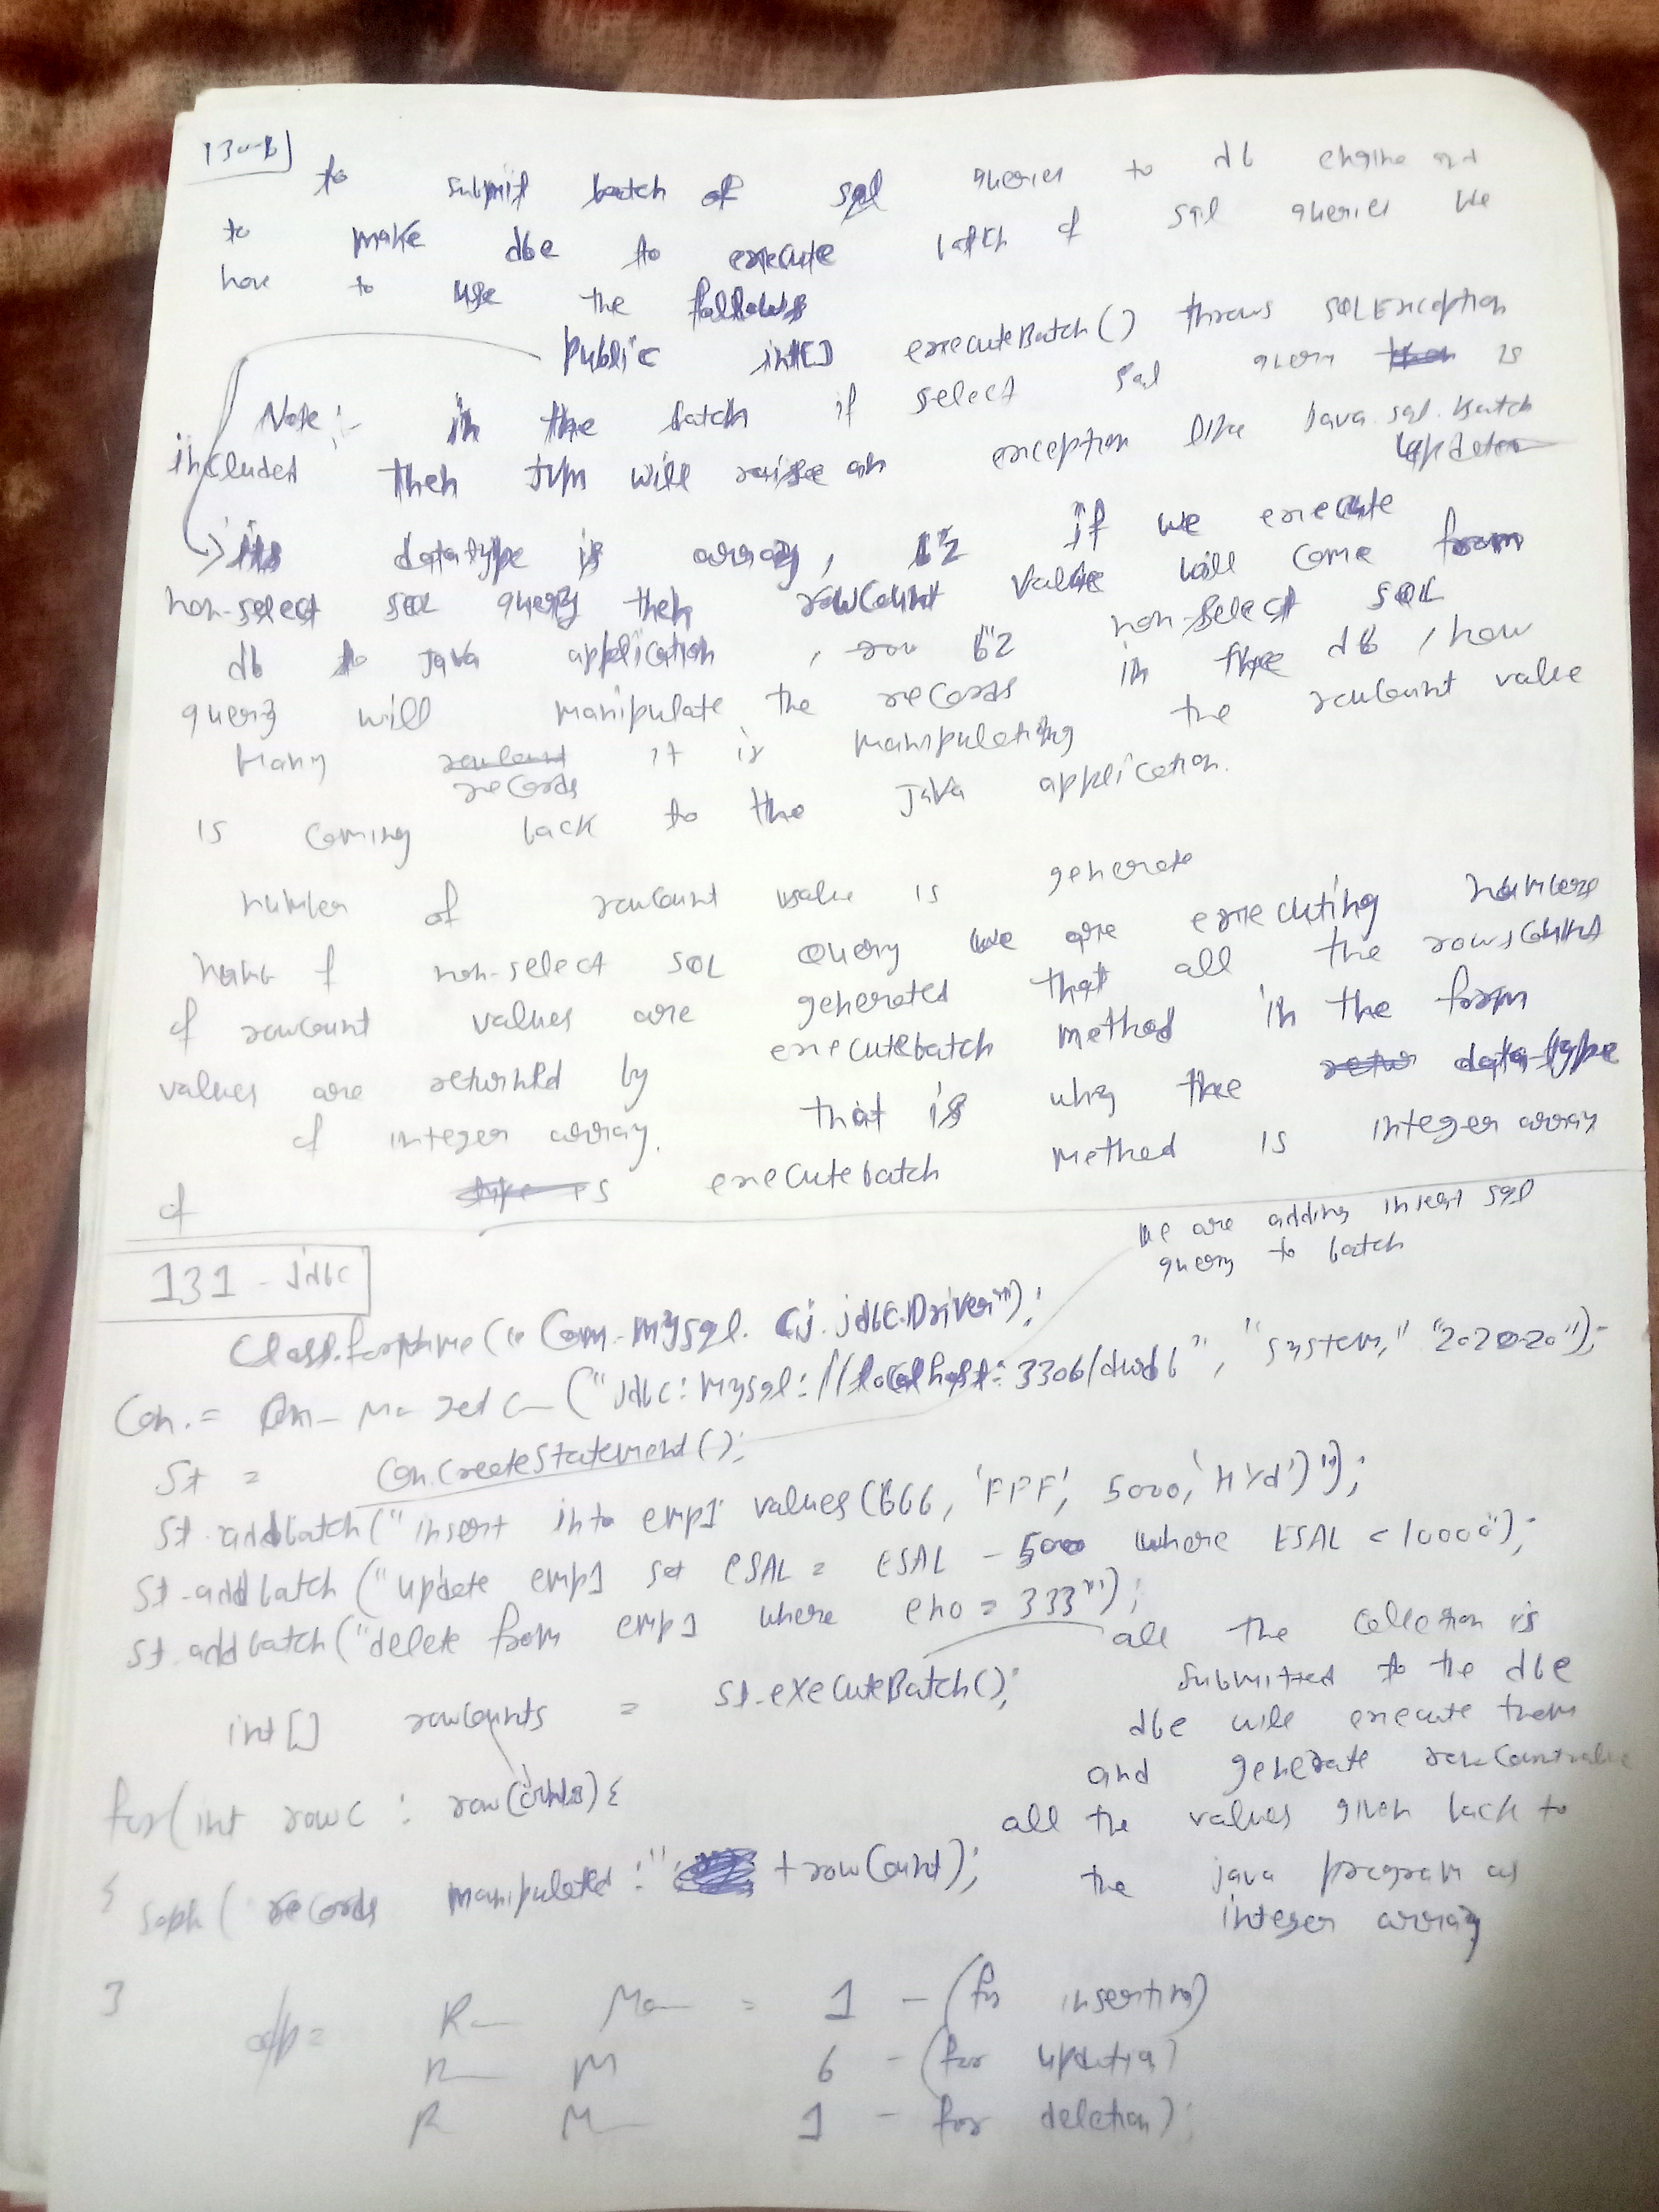 130-b]
to submit batch of sql queries to db engine and
to make dbe to execute batch of sql queries we
have to use the follows
public int[] executeBatch() throws SQLException
Note :- in the batch if select sql query is
included then JVM will raise an exception like java.sql.Batch
Updation
its datatype is array, bz if we execute
non-select SQL query then rowCount value will come from
db to java application, row bz non-select SQL
query will manipulate the records in the db, how
many records it is manipulating the rowCount value
is coming back to the java application.
number of rowCount value is generate
num of non-select SQL query we are executing numbers
of rowcount values are generated that all the rowscount
values are returned by executebatch method in the form
of integer array. that is why the data-type
of executebatch method is integer array
we are adding insert sql
query to batch
131 - jdbc
Class.forName("Com.mysql.cj.jdbc.Driver");
Con. = Dm- Ma get C- ("jdbc:mysql://localhost:3306/dwdb", "system," "202020");
St = Con.CreateStatement();
St.addbatch("insert into emp1 values(666, 'FFF', 5000, 'HYd')");
St.addbatch("update emp1 set ESAL = ESAL - 500 where ESAL < 10000");
St.addbatch("delete from emp1 where eno = 333");
int[] rowCounts = St.exeCuteBatch();
all the collection is
submitted to the dbe
dbe will execute them
and generate rowCountvalue
all the values given back to
the java program as
integer array
for(int rowc : rowCounts) {
{ sopln( records manipulated : " + rowCount);
}
o/p = R- Ma- = 1 - (for inserting)
R- M 6 - (for updating)
R M- 1 - for deletion);